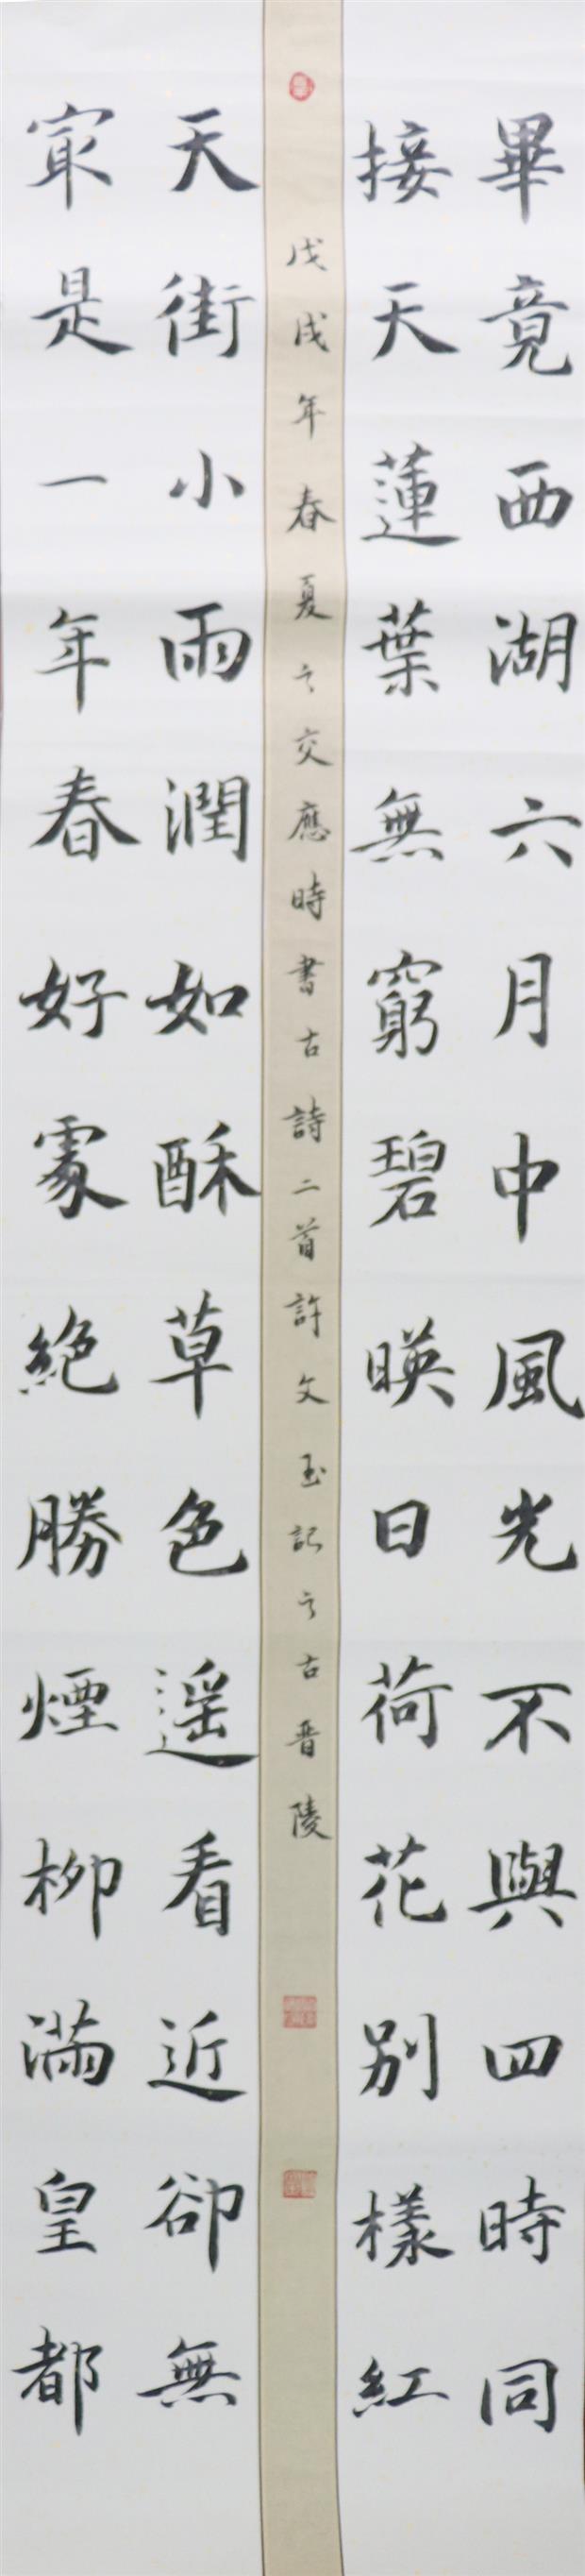 畢竟西湖六月中風光不與四時同
接天蓮葉無窮碧暎日荷花別樣紅
戊戌年春夏之交應時書古詩二首許文玉記於古晋陵
天街小雨潤如酥草色遥看近卻無
冣是一年春好處絕勝煙柳滿皇都